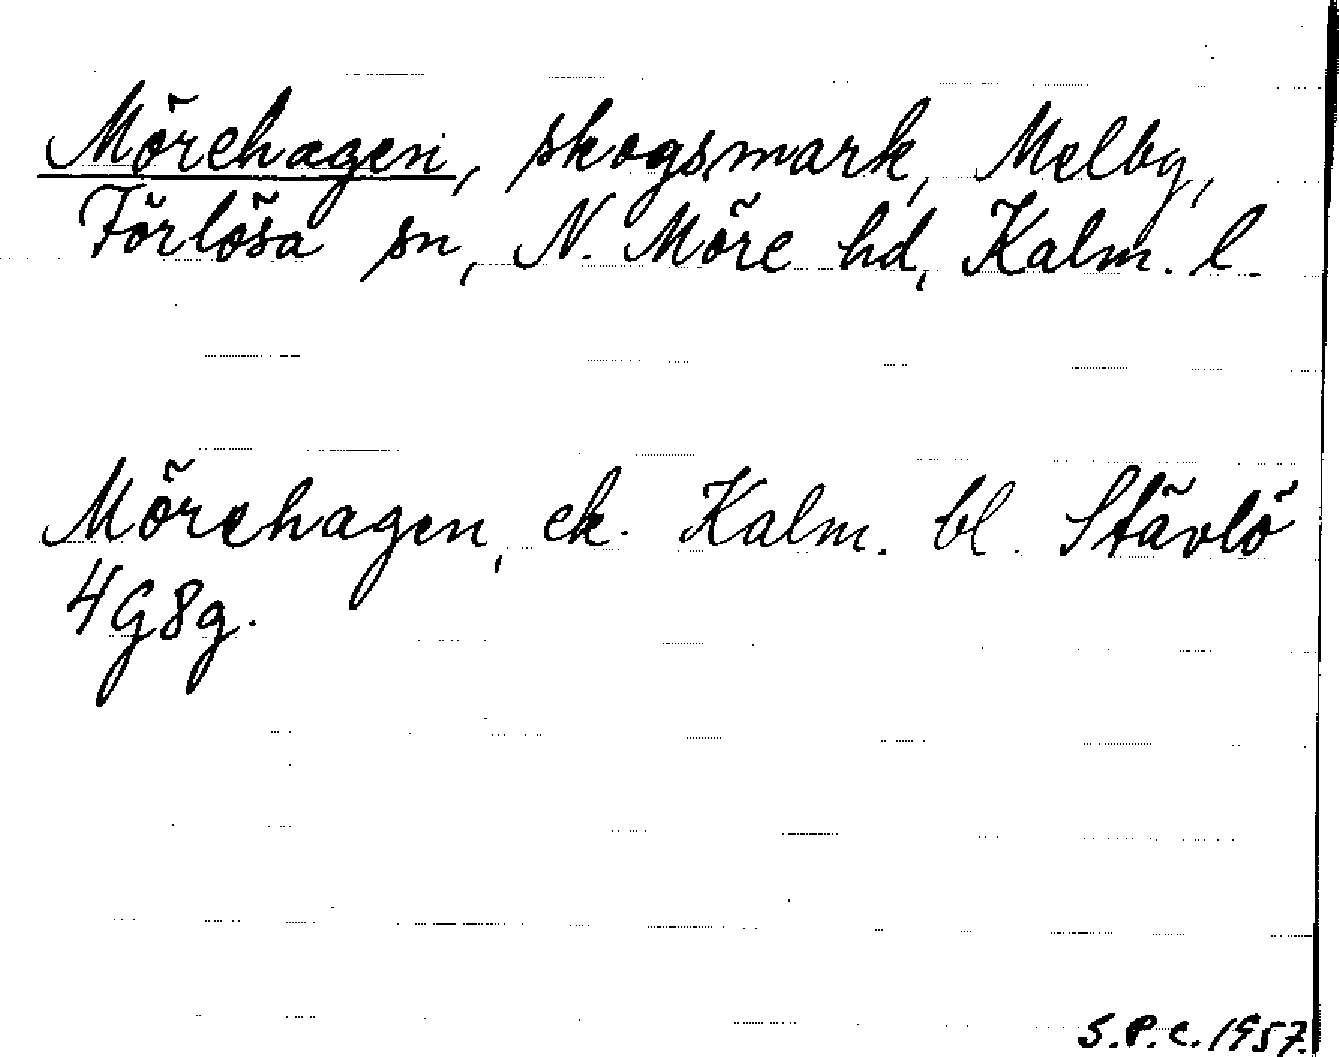 Mörehagen, skogsmark, Melby,
Förlösa sn, N. Möre hd, Kalm. l.
Mörehagen, ek. Kalm. bl. Stävlö
4G8g.
S.P.C. 1957.